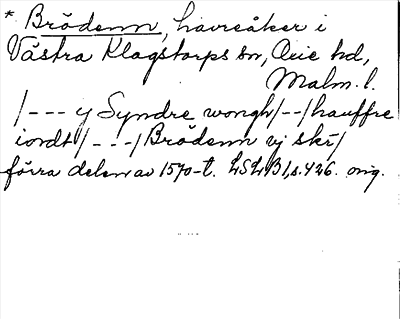 * Brödenn, havreåker i
Västra Klagstorps sn, Oxie hd,
Malm. l.
/--- y Syndre wongh/--/hauffre
iordt/---/Brödenn vj skr/
förra delen av 1570-t. LSLB1, s. 426. orig.